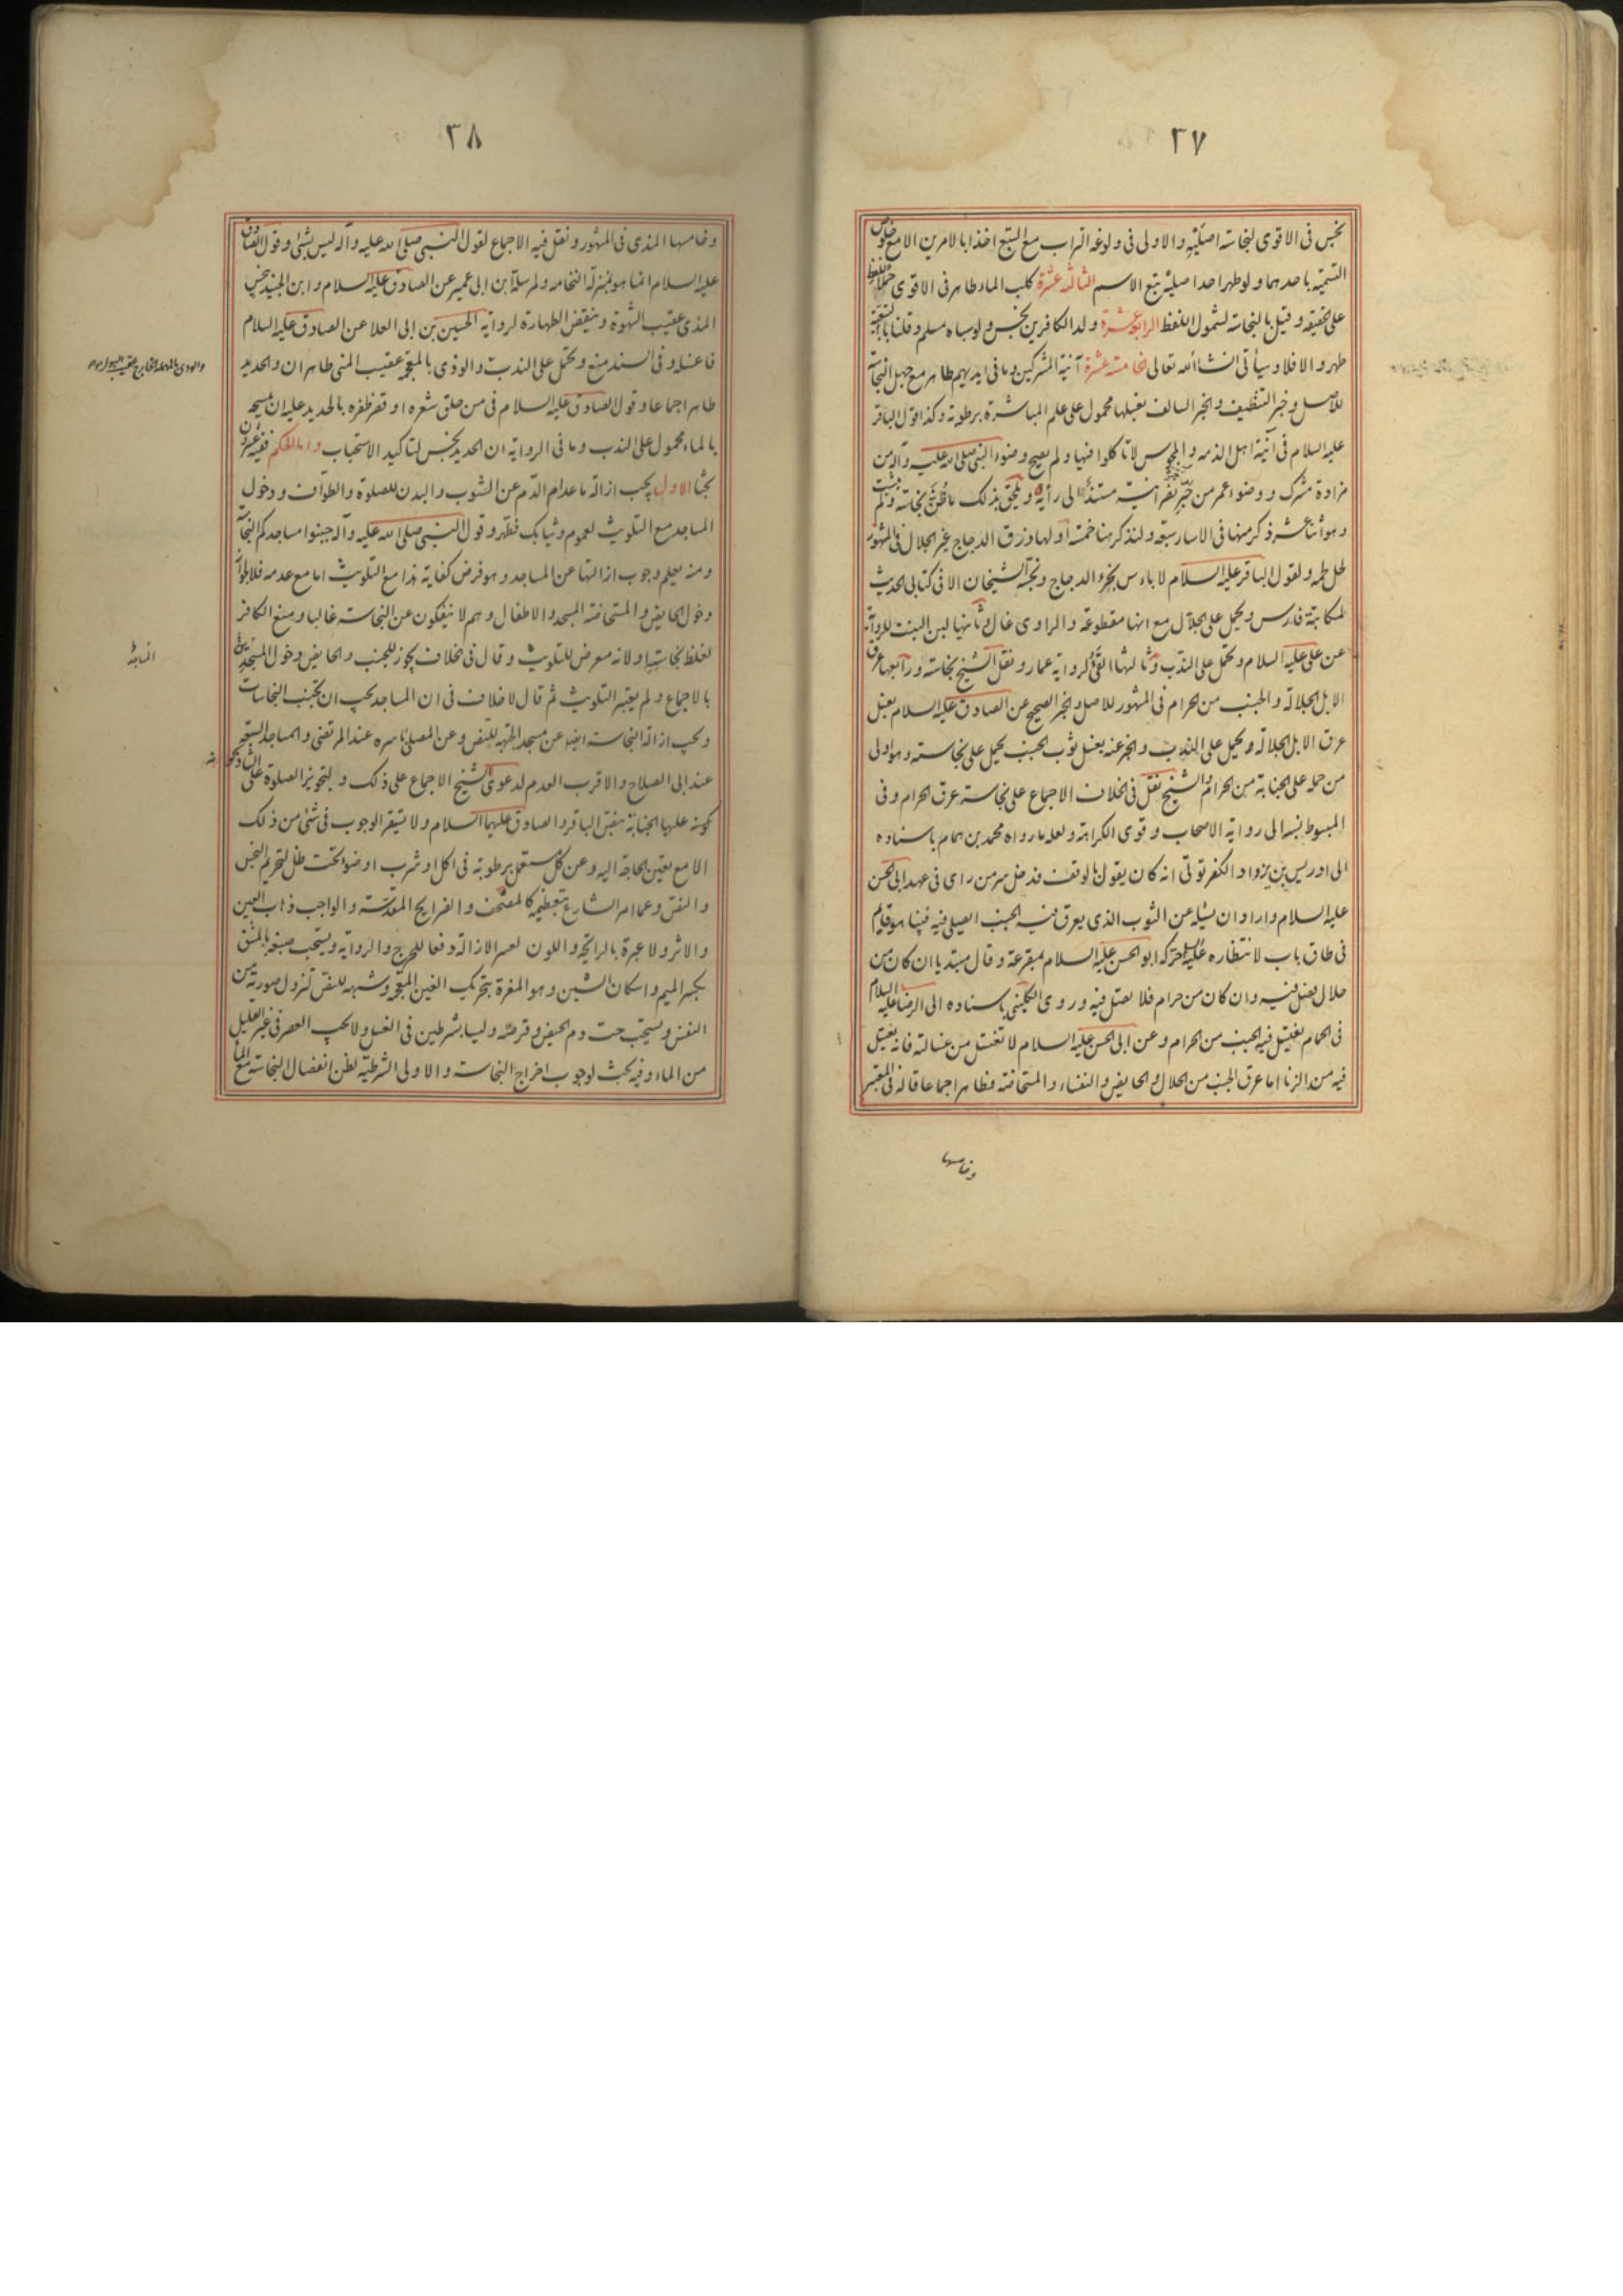 ٣٧
نجس فى الاقوى لنجاسته اصليّة والاولى فى ولوغه التراب مع السبع اخذا بالامرين الا مع خلوص
التسمية باحدهما ولو طهر احد اصليه تبع الاسم الثالثة عشرة كلب الماء طاهر فى الاقوى حملا للفظ
على الحقيقة وقيل بالنجاسة لشمول اللفظ الرابعة عشرة ولد الكافرين نجس ولو سباه مسلم وقلنا بالتبعية
طهر والا فلا وسيأتى انشاء الله تعالى الخامسة عشرة آنية المشركين وما فى ايديهم طاهر مع جهل النجاسة
للاصل وخبر التنظيف والخبر السالف بغسلها محمول على علم المباشرة برطوبة وكذا قول الباقر
عليه السلام فى آنية اهل الذمة والمجوس لا تأكلوا فيها ولم يصح وضوء النبى صلى الله عليه وآله من
مزادة مشرك ووضوء عمر من جرّ نصرانية مستند الى رأيه ويلحق بذلك ما ظُنّ نجاسته ولم يثبت
وهو اثنا عشر ذكر منها فى الاسار سبعة ولنذكر هنا خمسة اولها ذرق الدجاج غير الجلال فى المشهور
لحل لحمه ولقول الباقر عليه السلام لا بأس بخرء الدجاج ونجسه الشيخان الا فى كتابى الحديث
لمكاتبة فارس ويحمل على الجلال مع انها مقطوعة والراوى غال وثانيها لبن البنت للرواية
عن على عليه السلام ويحمل على الندب وثالثها القئ لرواية عمار ونقل الشيخ نجاسته ورابعها عرق
الابل الجلالة والجنب من الحرام فى المشهور للاصل والخبر الصحيح عن الصادق عليه السلام بغسل
عرق الابل الجلالة ويحمل على الندب والخبر عنه بغسل ثوب الجنب يحمل على نجاسته وهو اولى
من حمله على الجنابة من الحرام والشيخ نقل فى الخلاف الاجماع على نجاسة عرق الحرام وفى
المبسوط نسبه الى رواية الاصحاب وقوى الكراهة ولعله ما رواه محمد بن همام باسناده
الى ادريس بن يزداد الكفرتوثى انه كان يقول بالوقف فدخل سر من راى فى عهد ابى الحسن
عليه السلام واراد ان يسئله عن الثوب الذى يعرق فيه الجنب ايصلى فيه فبينا هو قايم
فى طاق باب لانتظاره عليه السلام حركه ابو الحسن عليه السلام بمقرعة وقال مبتديا ان كان من
حلال فصل فيه وان كان من حرام فلا تصل فيه وروى الكلينى باسناده الى الرضا عليه السلام
فى الحمام يغتسل فيه الجنب من الحرام وعن ابى الحسن عليه السلام لا تغتسل من غسالته فانه يغتسل
فيه من الزنا اما عرق الجنب من الحلال والحايض والنفساء والمستحاضة فطاهر اجماعا قاله فى المعتبر
وخامسها
٣٨
وخامسها المذى فى المشهور ونقل فيه الاجماع لقول النبى صلى الله عليه وآله ليس بشئ وقول الصادق
عليه السلام انما هو بمنزلة النخامة ولمرسلة ابن ابى عمير عن الصادق عليه السلام وابن الجنيد نجس
المذى عقيب الشهوة وينقض الطهارة لرواية الحسين بن ابى العلا عن الصادق عليه السلام
فاغسله وفى السند منع ويحمل على الندب والوذى بالمعجمة عقيب المنى طاهران والحديد
طاهر اجماعا وقول الصادق عليه السلام فى من حلق شعره او قص ظفره بالحديد عليه ان يمسحه
بالماء محمول على الندب وما فى الرواية ان الحديد نجس لتاكيد الاستحباب واما الحكم ففيه عشرون
بحثا الاول يجب ازالة ما عدا الدم عن الثوب والبدن للصلوة والطواف ودخول
المساجد مع التلويث لعموم وثيابك فطهر وقول النبى صلى الله عليه وآله جنبوا مساجدكم النجاسة
ومنه يعلم وجوب ازالتها عن المساجد وهو فرض كفاية هذا مع التلويث اما مع عدمه فلا لجواز
دخول الحايض والمستحاضة المسجد والاطفال وهم لا ينفكون عن النجاسة غالبا ومنع الكافر
لغلظ نجاسته او لانه معرض للتلويث وقال فى الخلاف يجوز للجنب والحايض دخول المسجدين
بالاجماع ولم يعتبر التلويث ثم قال لا خلاف فى ان المساجد يجب ان تجنب النجاسات
ويجب ازالة النجاسة ايضا عن مسجد الجبهة للنص وعن المصلى باسره عند المرتضى والمساجد السبعة
عند ابى الصلاح والاقرب العدم لدعوى الشيخ الاجماع على ذلك ولتجويز الصلوة على الشاذكونة
كونه عليها الجنابة بنص الباقر والصادق عليهما السلام ولا يستقر الوجوب فى شئ من ذلك
الا مع تعين الحاجة اليه وعن كل مستعمل برطوبة فى اكل او شرب او ضوء تحت ظل لتحريم النجس
والنص وعما امر الشارع بتعظيمه كالمصحف والضرايح المقدسة والواجب ذهاب العين
والاثر ولا عبرة بالرايحة واللون لعسر الازالة دفعا للحرج والرواية ويستحب صبغه بالمشق
بكسر الميم واسكان الشين وهو المغرة بتحريك الغين المعجمة وشبهه للنص لتزول صورته من
النفس ويستحب حت دم الحيض وقرصه وليسا بشرطين فى الغسل ولا يجب العصر فى غير القليل
من الماء وفيه بحث لوجوب اخراج النجاسة والاولى الشرطية لظن انفصال النجاسة مع الماء
والودى بالمهملة الخارج عقيب البول